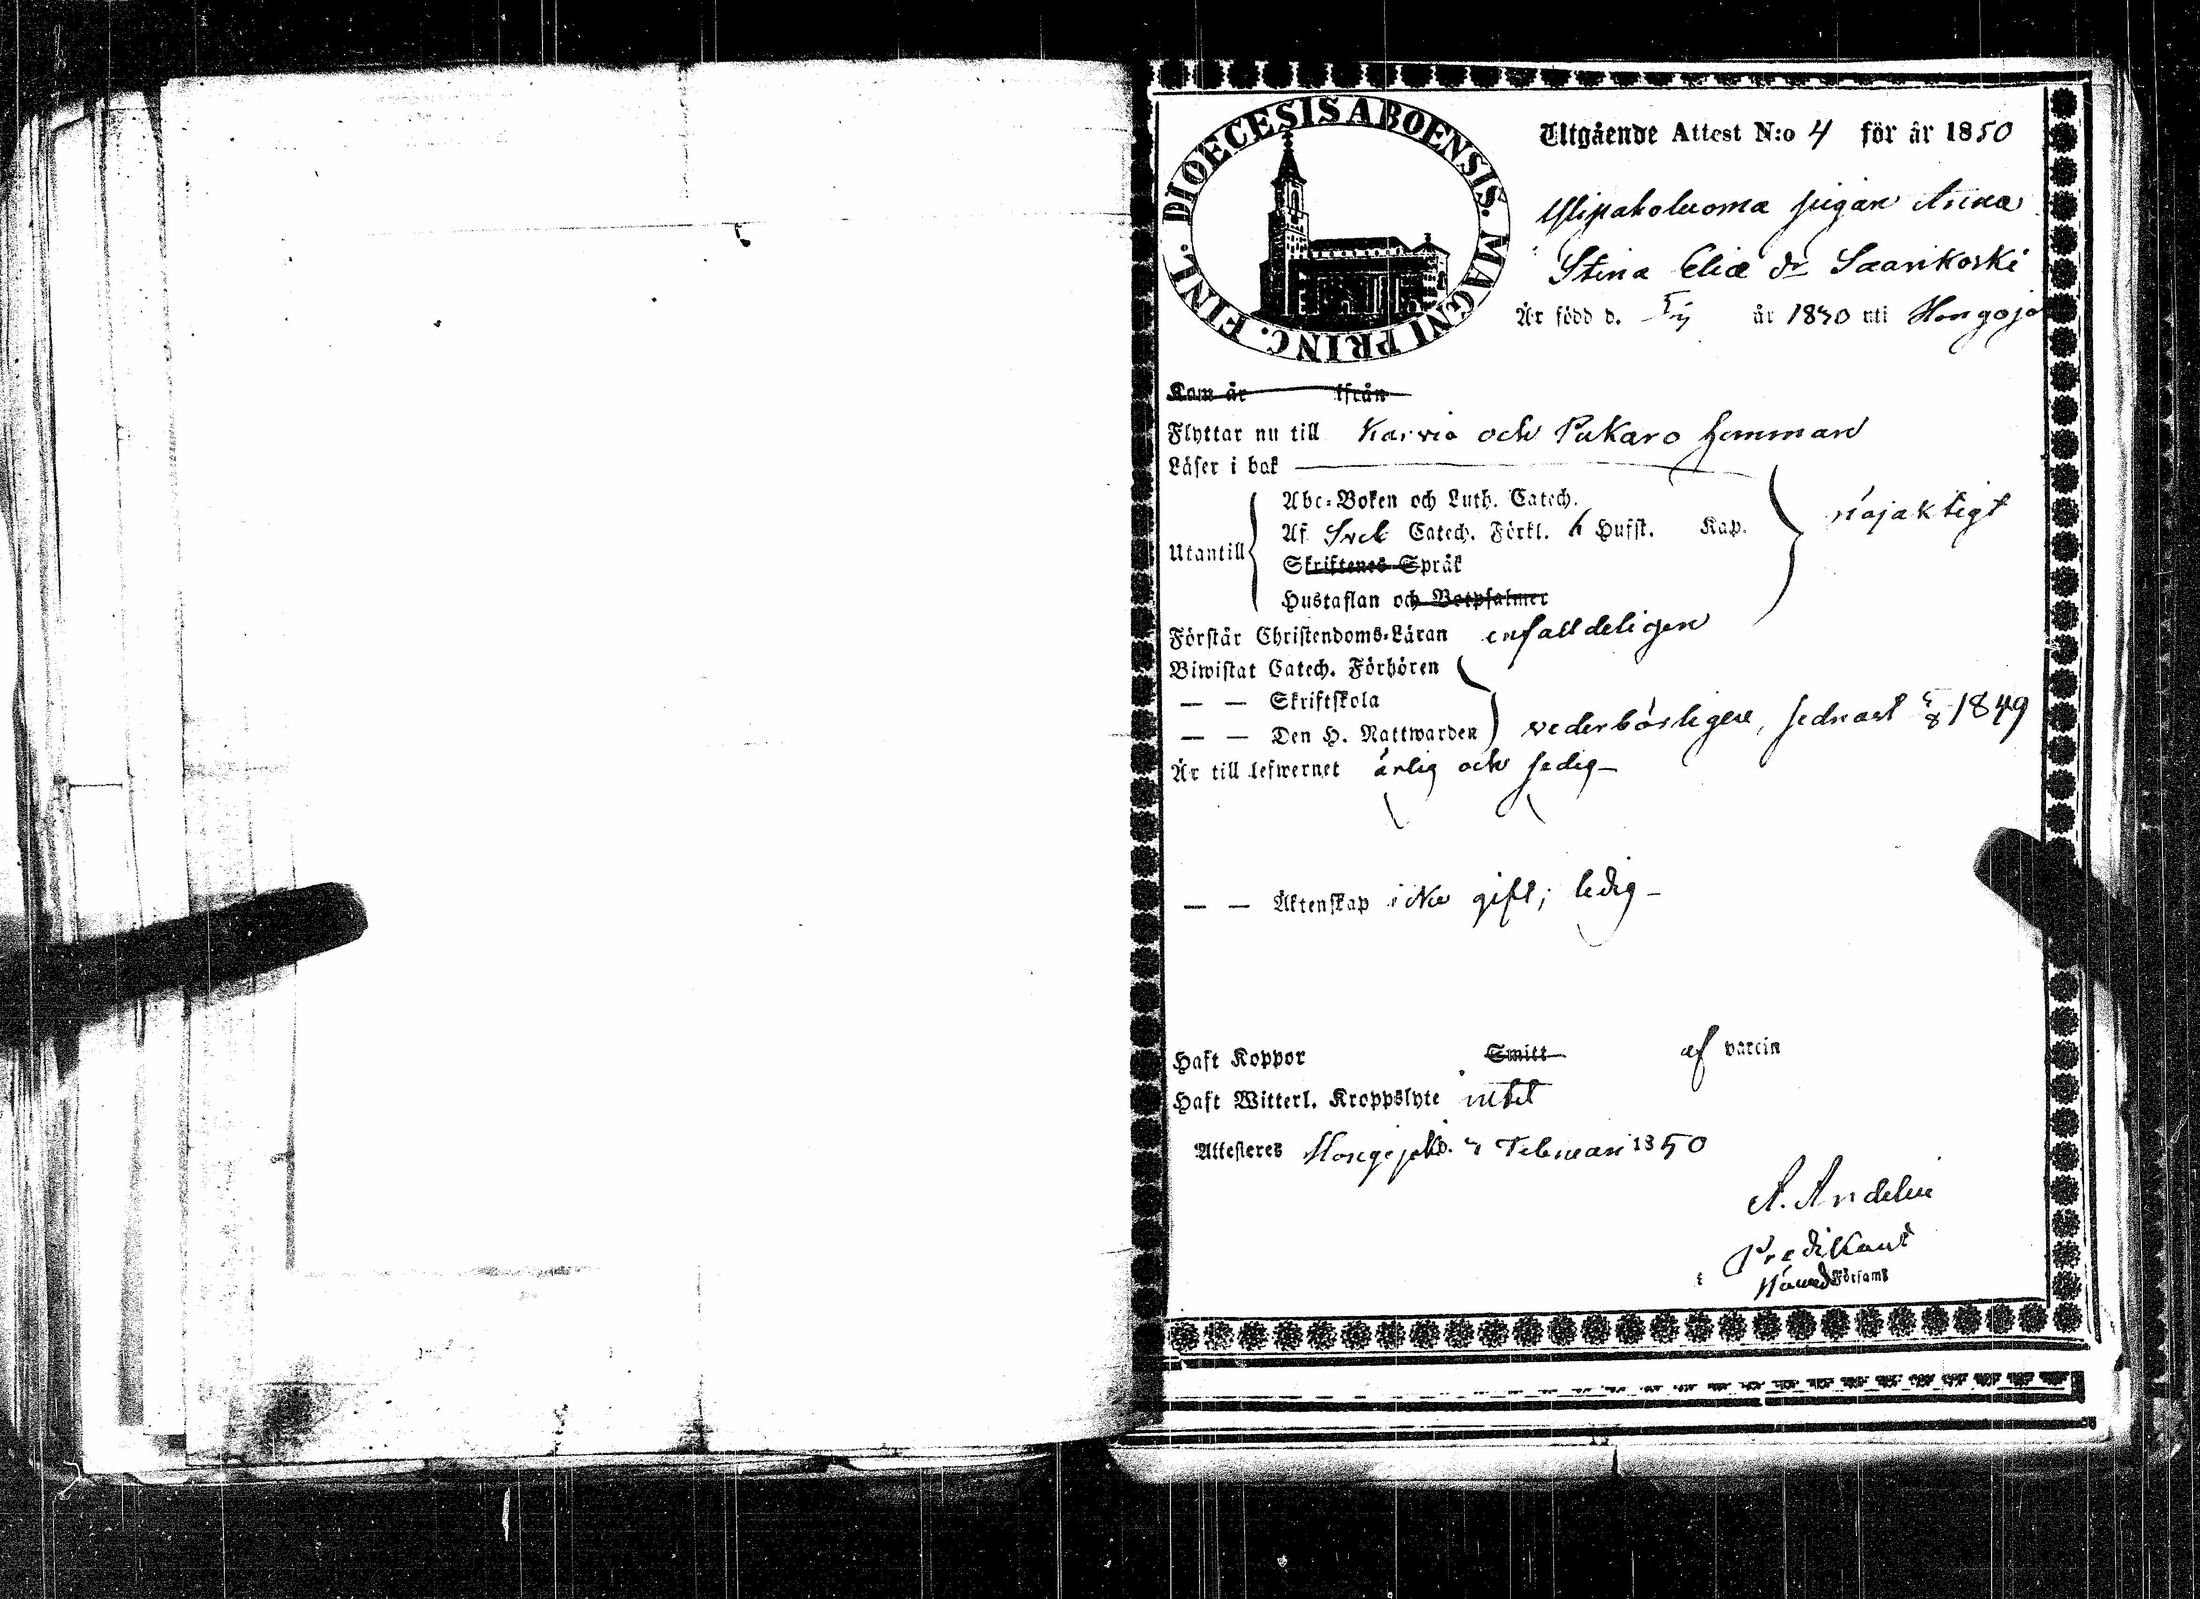 DIOECESIS ABOENSIS. MAGNI PRINC. FINL.
Utgående Attest N:o 4 för år 1850
pigan Anna
Stina Eliæ dr Saarikoski
Är född d. år 1830 uti Hongojo
Kom år ifrån
Flyttar nu till Karvia och Pukaro hemman
Läser i bok
Utantill
Abc-Boken och Luth. Catech.
Af Sveb Catech. Förkl. 6 Hufst. Kap.
Skriftenes Språk
Hustaflan och Botpsalmer
nöjaktigt
Förstår Christendoms-Läran enfalldeligen
Biwistat Catech. Förhören
— — Skriftskola
— — Den H. Nattwarden
vederbörligen, sednast 5/8 1849
Är till lefwernet ärlig och sedig —
— — Äktenskap icke gift; ledig —
Haft Koppor Smitt af vaccin
Haft Witterl. Kroppslyte intet
Attesteres Hongojoki d. Februari 1850
A. Andelin
Predikant
i Församl